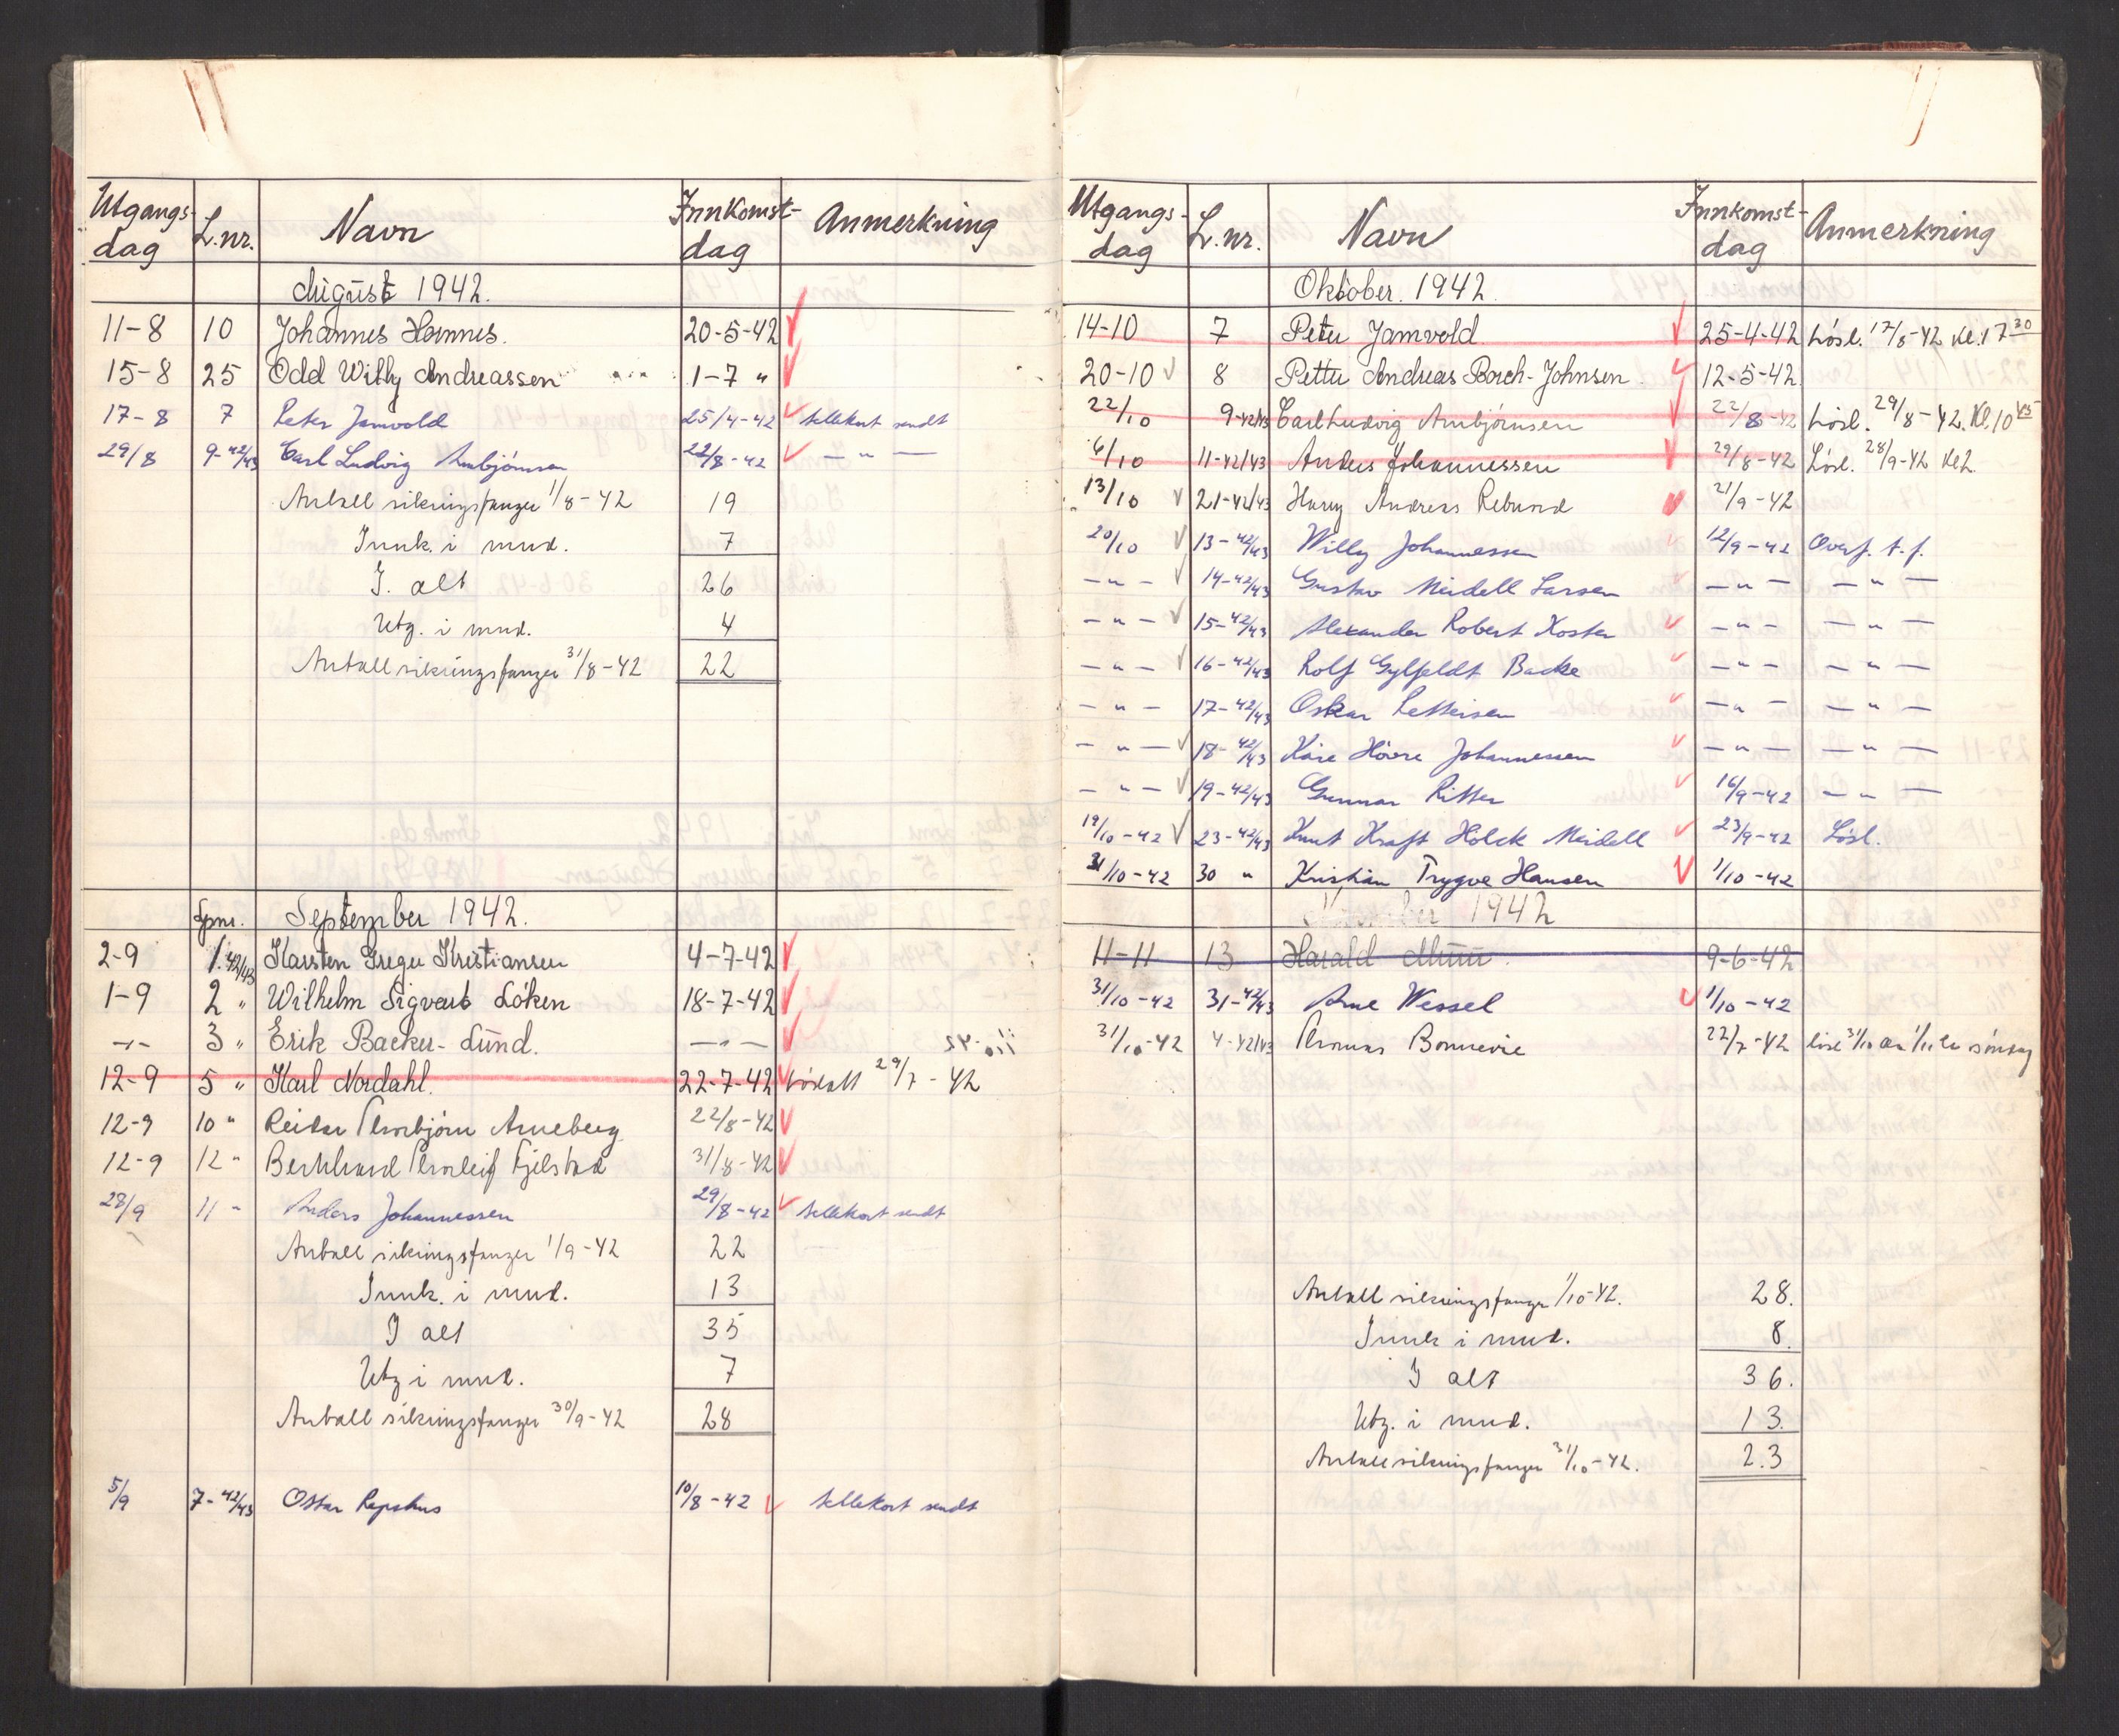 Utgangs-dag L.nr. Navn Innkomst-dag Anmerkning
August 1942.
11-8 10 Johannes Hamnes. 20-5-42
15-8 25 Odd Willy Andreassen 1-7 "
17-8 7 Peter Jamvold 25/4-42 tellekort sendt
29/8 9-42/43 Carl Ludvig Arnbjörnsen 22/8-42 — " —
Antall sikringsfanger 1/8-42 19
Innk. i mnd. 7
I. alt 26
Utg. i mnd. 4
Antall sikringsfanger 31/8-42 22
Lpnr. September 1942.
2-9 1.42/43 Karsten Greger Kristiansen 4-7-42
1-9 2 " Wilhelm Sigvart Löken 18-7-42
-"- 3 " Erik Backer-Lund. -"-
12-9 5 " Karl Nordahl. 22-7-42 Löslatt 29/7-42
12-9 10 " Reidar Thorbjörn Arneberg 22/8-42
12-9 12 " Bernhard Thorleif Fjelstad 31/8-42
28/9 11 - Anders Johannessen 29/8-42 tellekort sendt
Antall sikringsfanger 1/9-42 22
Innk. i mnd. 13
I alt 35
Utg i mnd. 7
Antall sikringsfanger 30/9-42 28
5/9 7-42/43 Ottar Repshus 10/8-42 tellekort sendt
Utgangs-dag L.nr. Navn Innkomst-dag Anmerkning
Oktober. 1942.
14-10 7 Peter Jamvold 25-4-42 Lösl. 17/8-42 Kl. 17 30
20-10 8 Petter Andreas Borch-Johnsen 12-5-42
22/10 9-42/43 Carl Ludvig Arnbjörnsen 22/8-42 Lösl. 29/8-42. Kl. 10 45
6/10 11-42/43 Anders Johannessen 29/8-42 Lösl. 28/9-42 Kl 2.
13/10 21-42/43 Harry Andreas Rebund 21/9-42
20/10 13-42/43 Willy Johannessen 12/9-42 Overf. t.f.
— " — 14-42/43 Gustav Meidell Larsen — " — — " —
— " — 15-42/43 Alexander Robert Koster — " — — " —
— " — 16-42/43 Rolf Gylfeldt Backe — " — — " —
— " — 17-42/43 Oskar Pettersen — " — — " —
— " — 18-42/43 Kåre Hövre Johannessen — " — — " —
— " — 19-42/43 Gunnar Ritter 16/9-42 — " —
19/10-42 23-42/43 Knut Kraft Holck Meidell 23/9-42 Lösl.
31/10-42 30 " Kristian Trygve Hansen 1/10-42
November 1942
11-11 13 Harald 9-6-42
31/10-42 31-42/43 Arne Wessel 1/10-42
31/10-42 4-42/43 Thomas Bonnevie 22/7-42 lösl 31/10 da 1/11 er söndag
Antall sikringsfanger 1/10-42. 28.
Innk i mnd. 8.
I alt 36.
Utg. i mnd. 13.
Antall sikringsfanger 31/10-42. 23